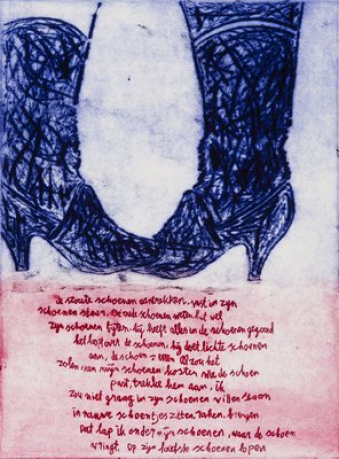 de stoute schoenen aantrekken, vast in zijn
schoenen staan. De oude schoenen weten het wel
zijn schoenen bij hij heeft alles in de schoenen gegooid
het loopt over de schoenen, hij doet lichte schoenen
aan, de schoen al zou het
zolen van mijn schoenen kosten wie de schoen
past, trekke hem aan, ik
zou niet graag in zijn schoenen willen staan
in nauwe schoentjes zitten, raken, brengen
Dat lap ik onder mijn schoenen, waar de schoen
wringt. Op zijn laatste schoenen lopen